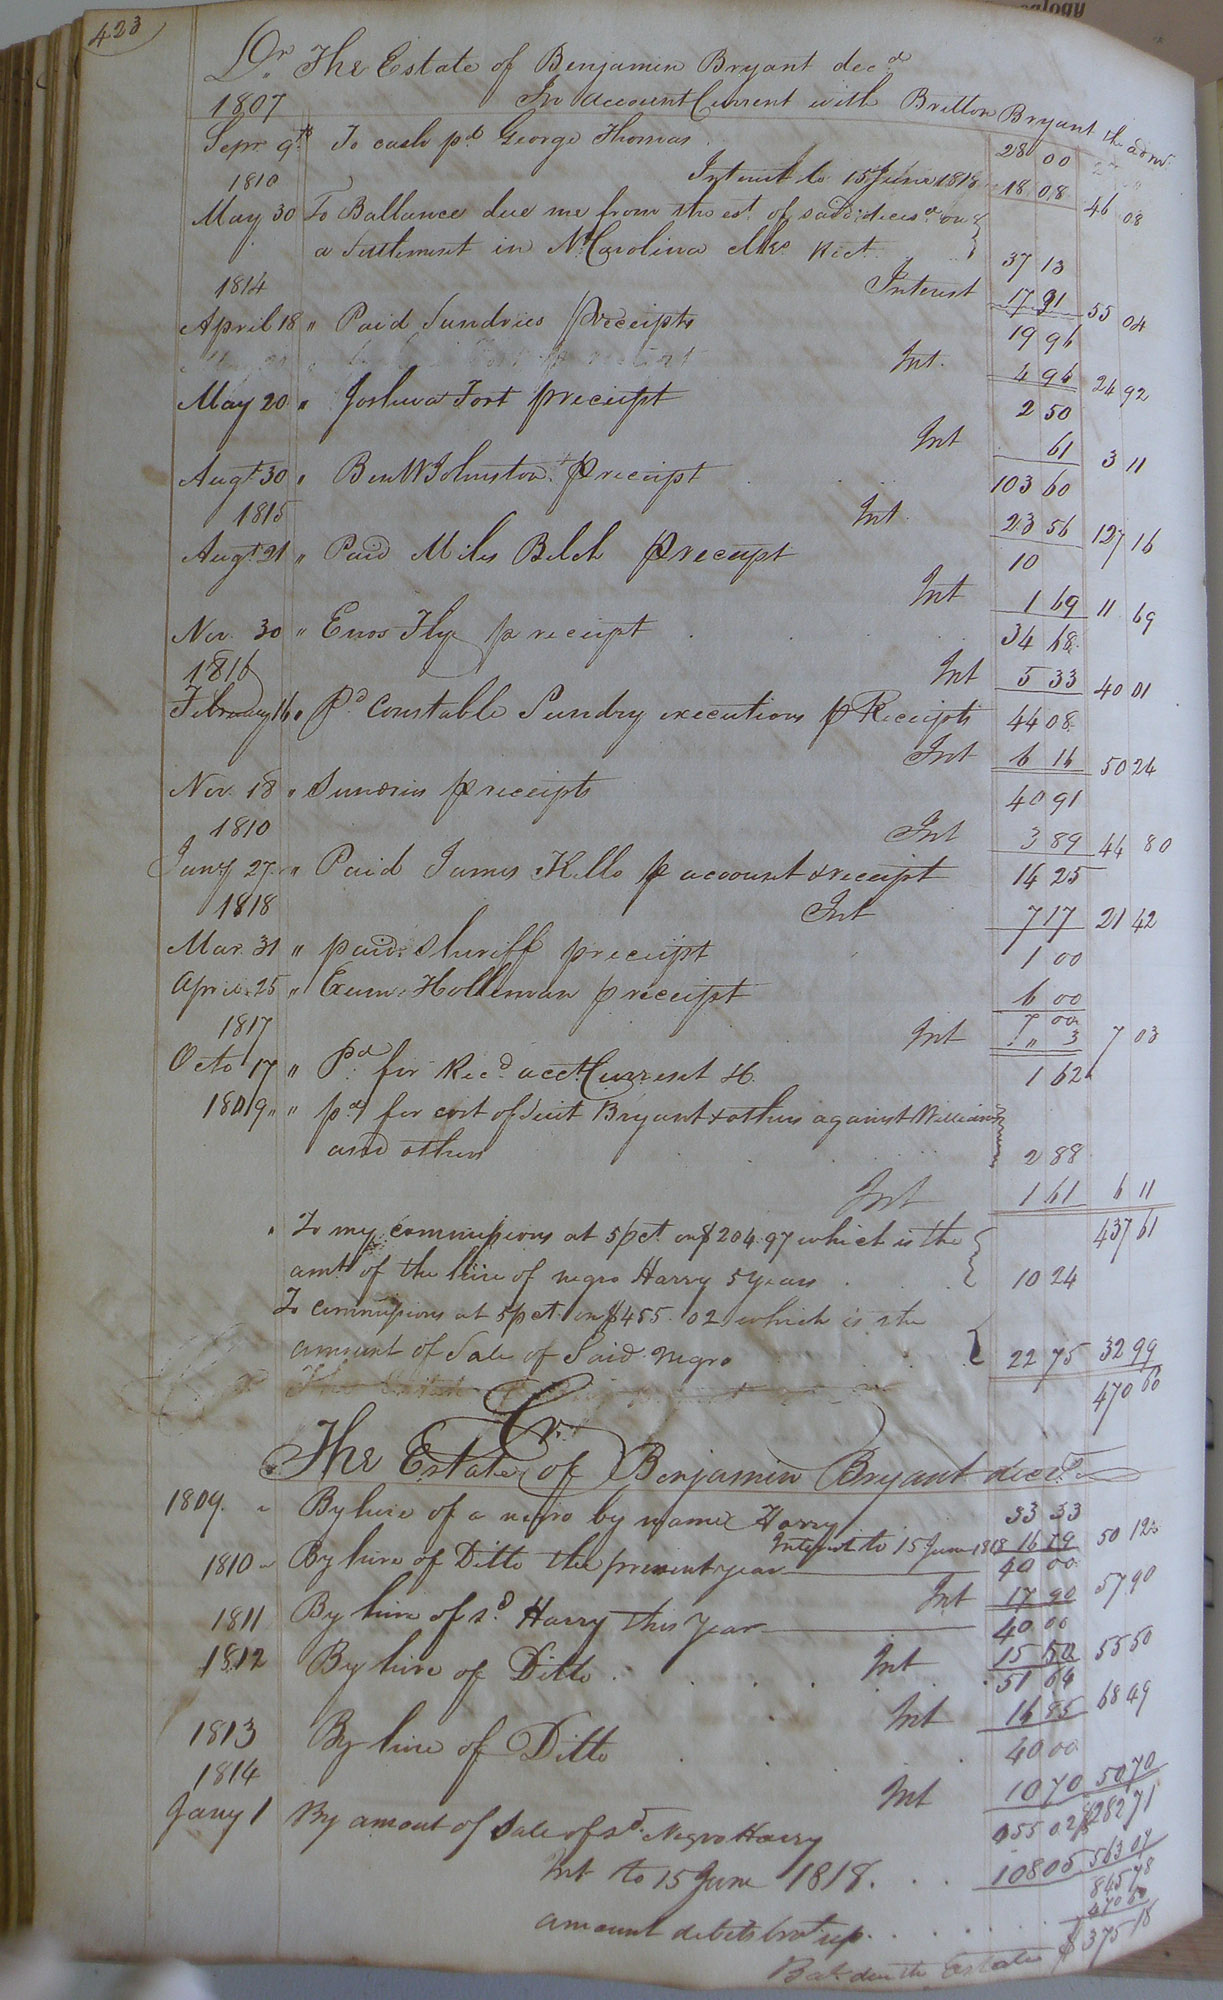 423
alogy
Dr. The Estate of Benjamin Bryant decd
1807 In account Current with Britton Bryant the admr.
Sepr. 9th To cash pd George Thomas 28 00
1810 Interest to 15 June 1818 18 08 46 08
May 30 To Ballance due me from the est. of said decesd on
a Settlement in No Carolina Rect. 37 13
1814 Interest 17 91 55 04
April 18 " Paid Sundries p receipts 19 96
Int. 4 96 24 92
May 20 " Joshua Fort p receipt 2 50
Int 61 3 11
Augt 30 " Ben W Johnston p receipt 103 60
1815 Int. 23 56 127 16
Augt 21 " Paid Miles Belch p receipt 10
Int 1 69 11 69
Nov. 30 " Enos Fly p receipt 34 68
1816 Int 5 33 40 01
February 16 " Pd Constable Sundry executions p Receipts 44 08
Int 6 16 50 24
Nov. 18 " Sundries p receipts 40 91
1810 Int 3 89 44 80
Jany 27 " Paid James Kello p account & receipt 14 25
1818 Int 7 17 21 42
Mar. 31 " paid Sheriff p receipt 1 00
April 25 " Exum Holleman p receipt 6 00
7 00
1817 Int " 3 7 03
Octo 17 " Pd for Recd acct Current &c. 1 62
1809 " " pd for cost of Suit Bryant & others against Williams
and others 2 88
Int 1 61 6 11
437 61
" To my commissions at 5 pct on $204.97 which is the
amt of the hire of negro Harry 5 years 10 24
To commissions at 5 pct on $455.02 which is the
amount of Sale of Said negro 22 75 32 99
470 60
Cr.
The Estate of Benjamin Bryant decd
1809. " By hire of a negro by name Harry 33 33
Interest to 15 June 1818 16 79 50 12
1810 " By hire of Ditto the present year 40 00
Int 17 90 57 90
1811 By hire of sd Harry this year 40 00
Int 15 50 55 50
1812 By hire of Ditto 51 64
Int 16 85 68 49
1813 By hire of Ditto 40 00
1814 Int 10 70 50 70
$282 71
Jany 1 By amout of Sale of sd Negro Harry 455 02
Int to 15 June 1818. 108 05 563 07
845 78
amount debits brot up 470 60
Bal. due the Estate $375 18